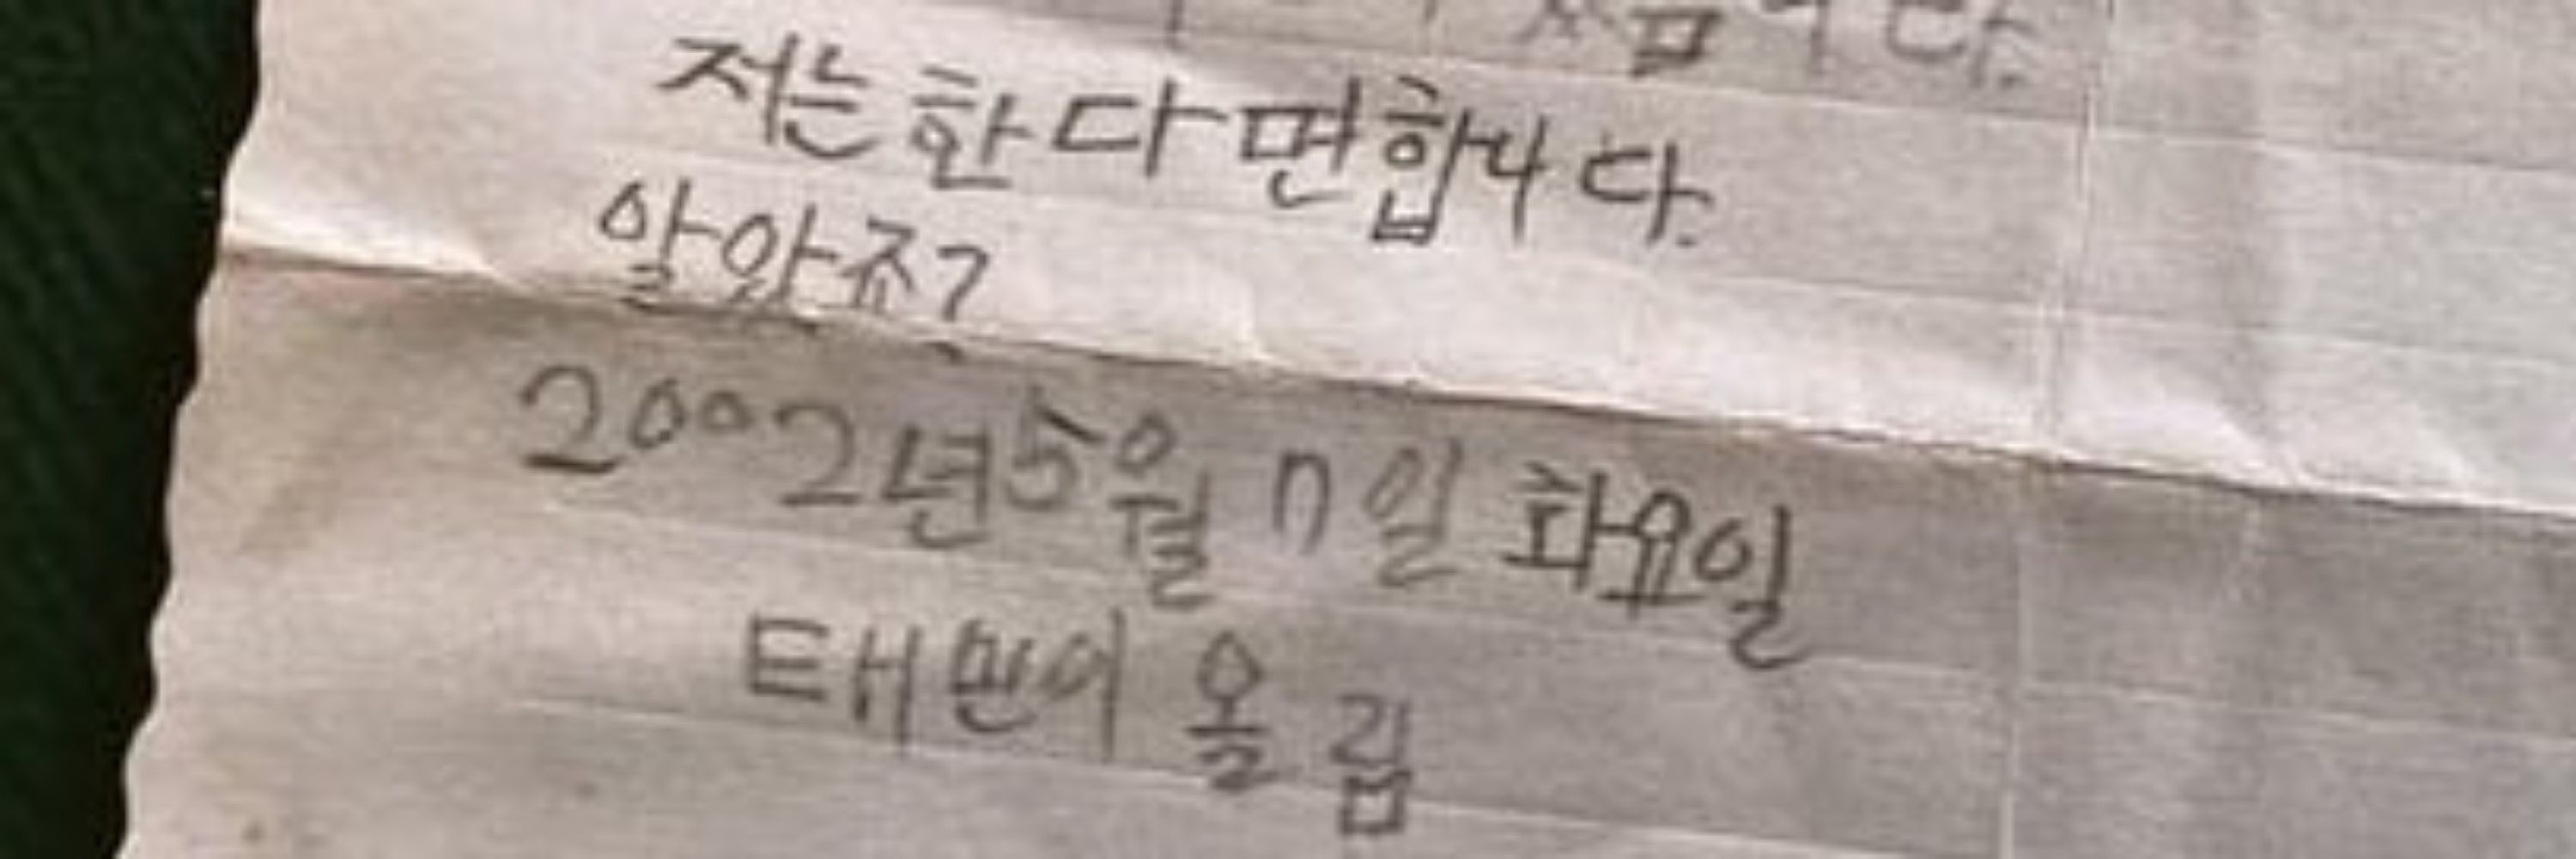 저는 한다면 합니다.
알았죠?
2002년 5월 7일 화요일
태민이 올림